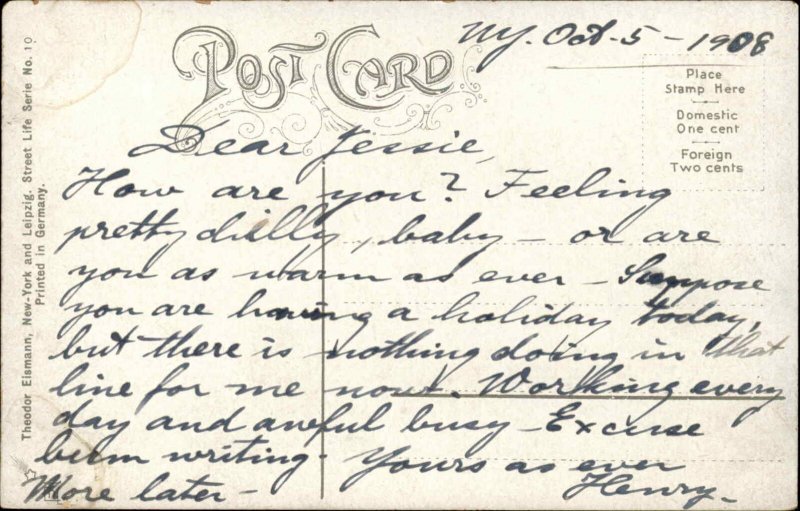 NY. Oct. 5 - 1908
POST CARD
Place
Stamp Here
Domestic
One cent
Foreign
Two cents
Dear Jessie,
How are you? Feeling
pretty chilly, baby - or are
you as warm as ever - Suppose
you are having a holiday today,
but there is nothing doing in that
line for me now. Working every
day and awful busy - Excuse
bum writing. Yours as ever
More later - Henry -
Theodor Eismann, New-York and Leipzig. Street Life Serie No. 10
Printed in Germany.